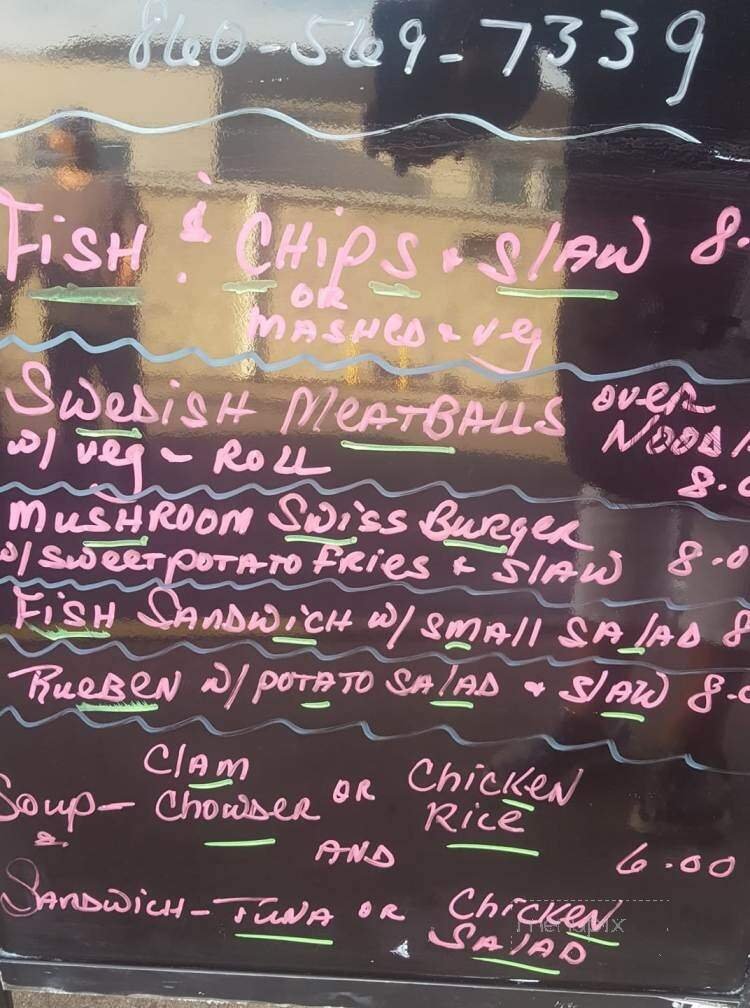 860-569-7339
FiSH & CHiPS & SlAW 8.
OR
MASHED & veg
SWEDiSH MEATBALLS OVER
w/ veg - ROLL NOODl
8.0
MUSHROOM SWiSS BURgER
w/ SWEETPOTATO FRiES & SlAW 8.0
FiSH SANDWiCH w/ SMAll SAlAD 8
RUEBEN w/ POTATO SAlAD & SlAW 8.0
ClAM
Soup - CHOWDER OR CHiCKEN
& RiCE
AND 6.00
SANDWiCH - TUNA OR CHiCKEN
SAlAD
menupix